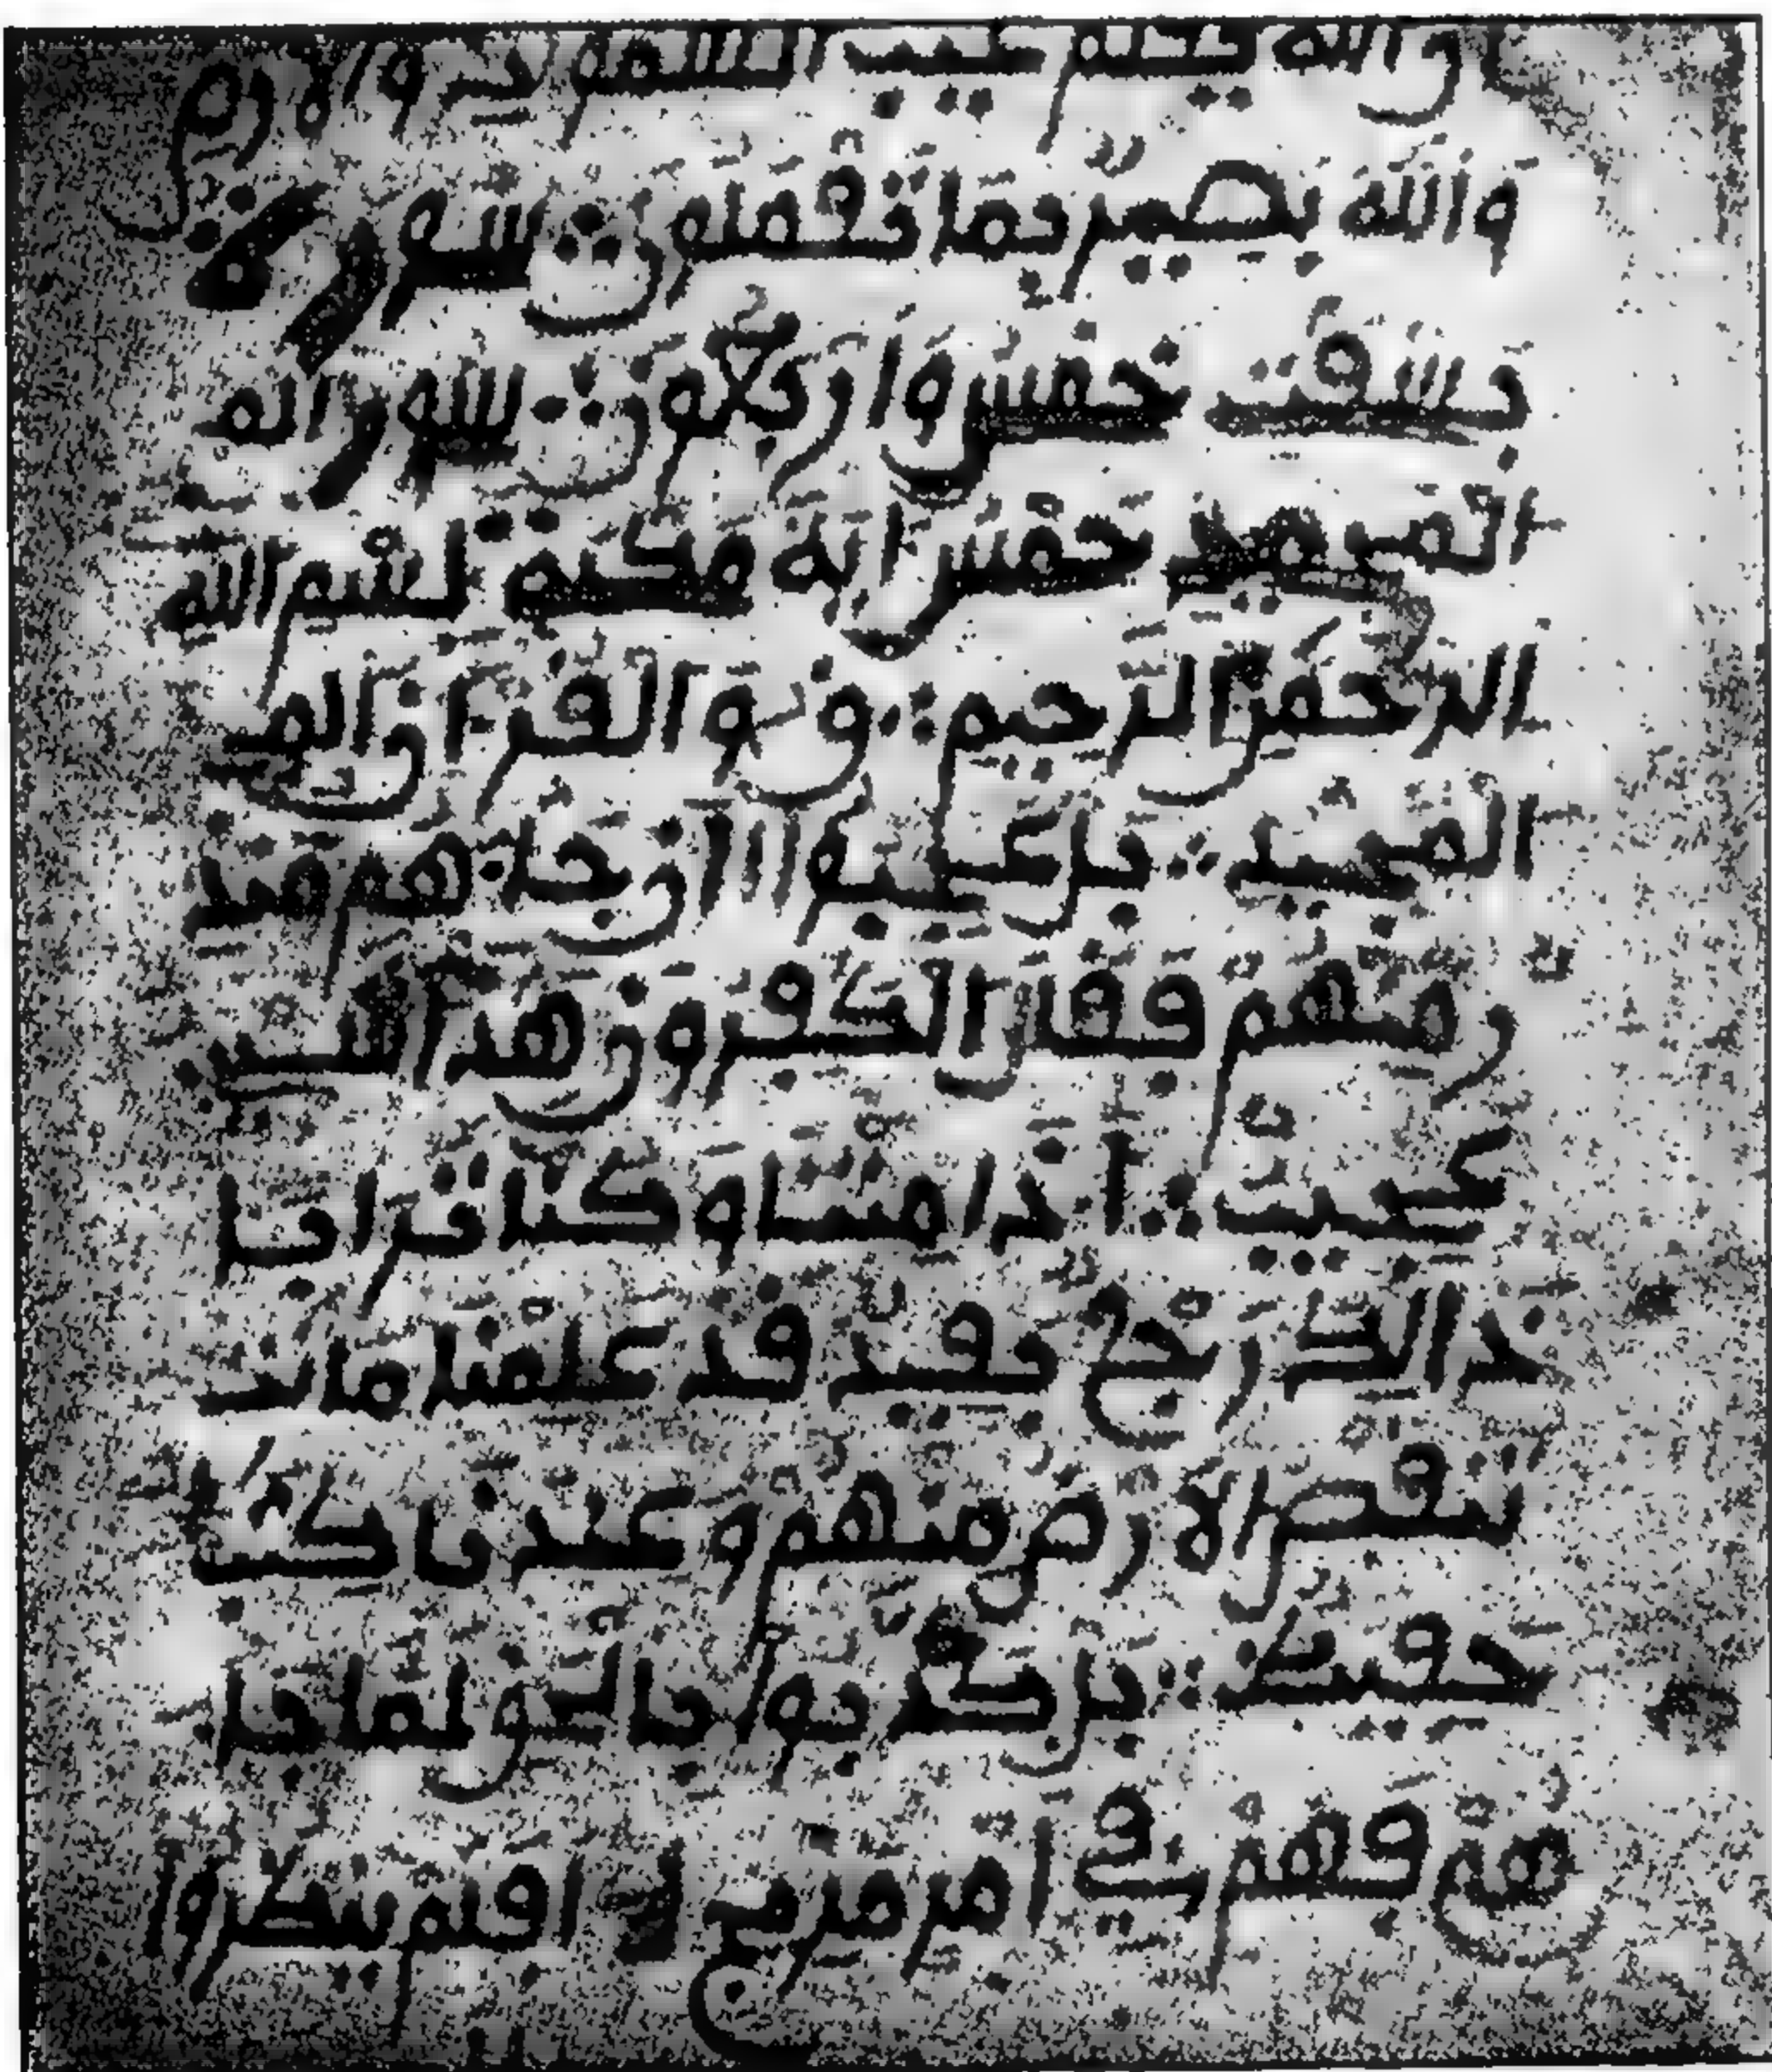 ن الله يعلم غيب السموت والارض
والله بصير بما تعملون ؞ سورة
بسقت خمس واربعون ؞ سورة الم
خمس اية مكية بسم الله
الرحمن الرحيم ؞ ق و القرءان الم
المجيد ؞ بل عجبوا ان جا هم منذ
ر منهم فقال الكفرون هذا شي
عجيب ؞ اذا متنا وكنا ترابا
ذالك رجع بعيد قد علمنا ما ت
تنقص الارض منهم وعندنا كتب
حفيظ ؞ بل كذبوا بالحق لما جا
هم فهم في امر مريج افلم ينظروا